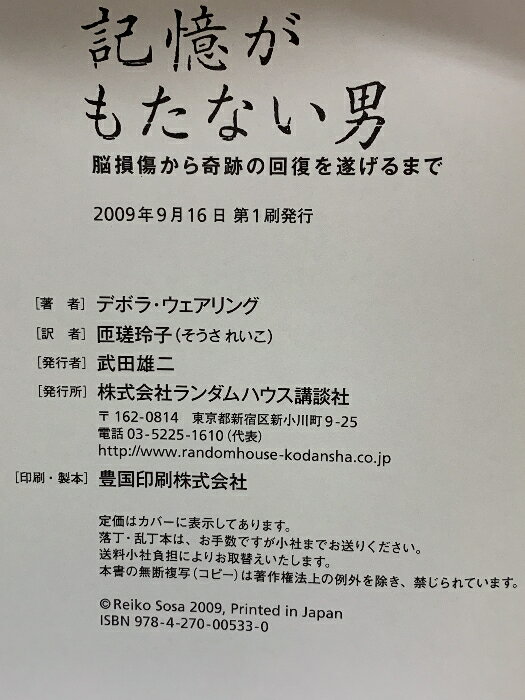 記憶が
もたない男
脳損傷から奇跡の回復を遂げるまで
2009年9月16日 第1刷発行
[著　者] デボラ・ウェアリング
[訳　者] 匝瑳玲子(そうさ れいこ)
[発行者] 武田雄二
[発行所] 株式会社ランダムハウス講談社
〒162-0814　東京都新宿区新小川町9-25
電話 03-5225-1610(代表)
http://www.randomhouse-kodansha.co.jp
[印刷・製本] 豊国印刷株式会社
定価はカバーに表示してあります。
落丁・乱丁本は、お手数ですが小社までお送りください。
送料小社負担によりお取替えいたします。
本書の無断複写(コピー)は著作権法上の例外を除き、禁じられています。
©Reiko Sosa 2009, Printed in Japan
ISBN 978-4-270-00533-0